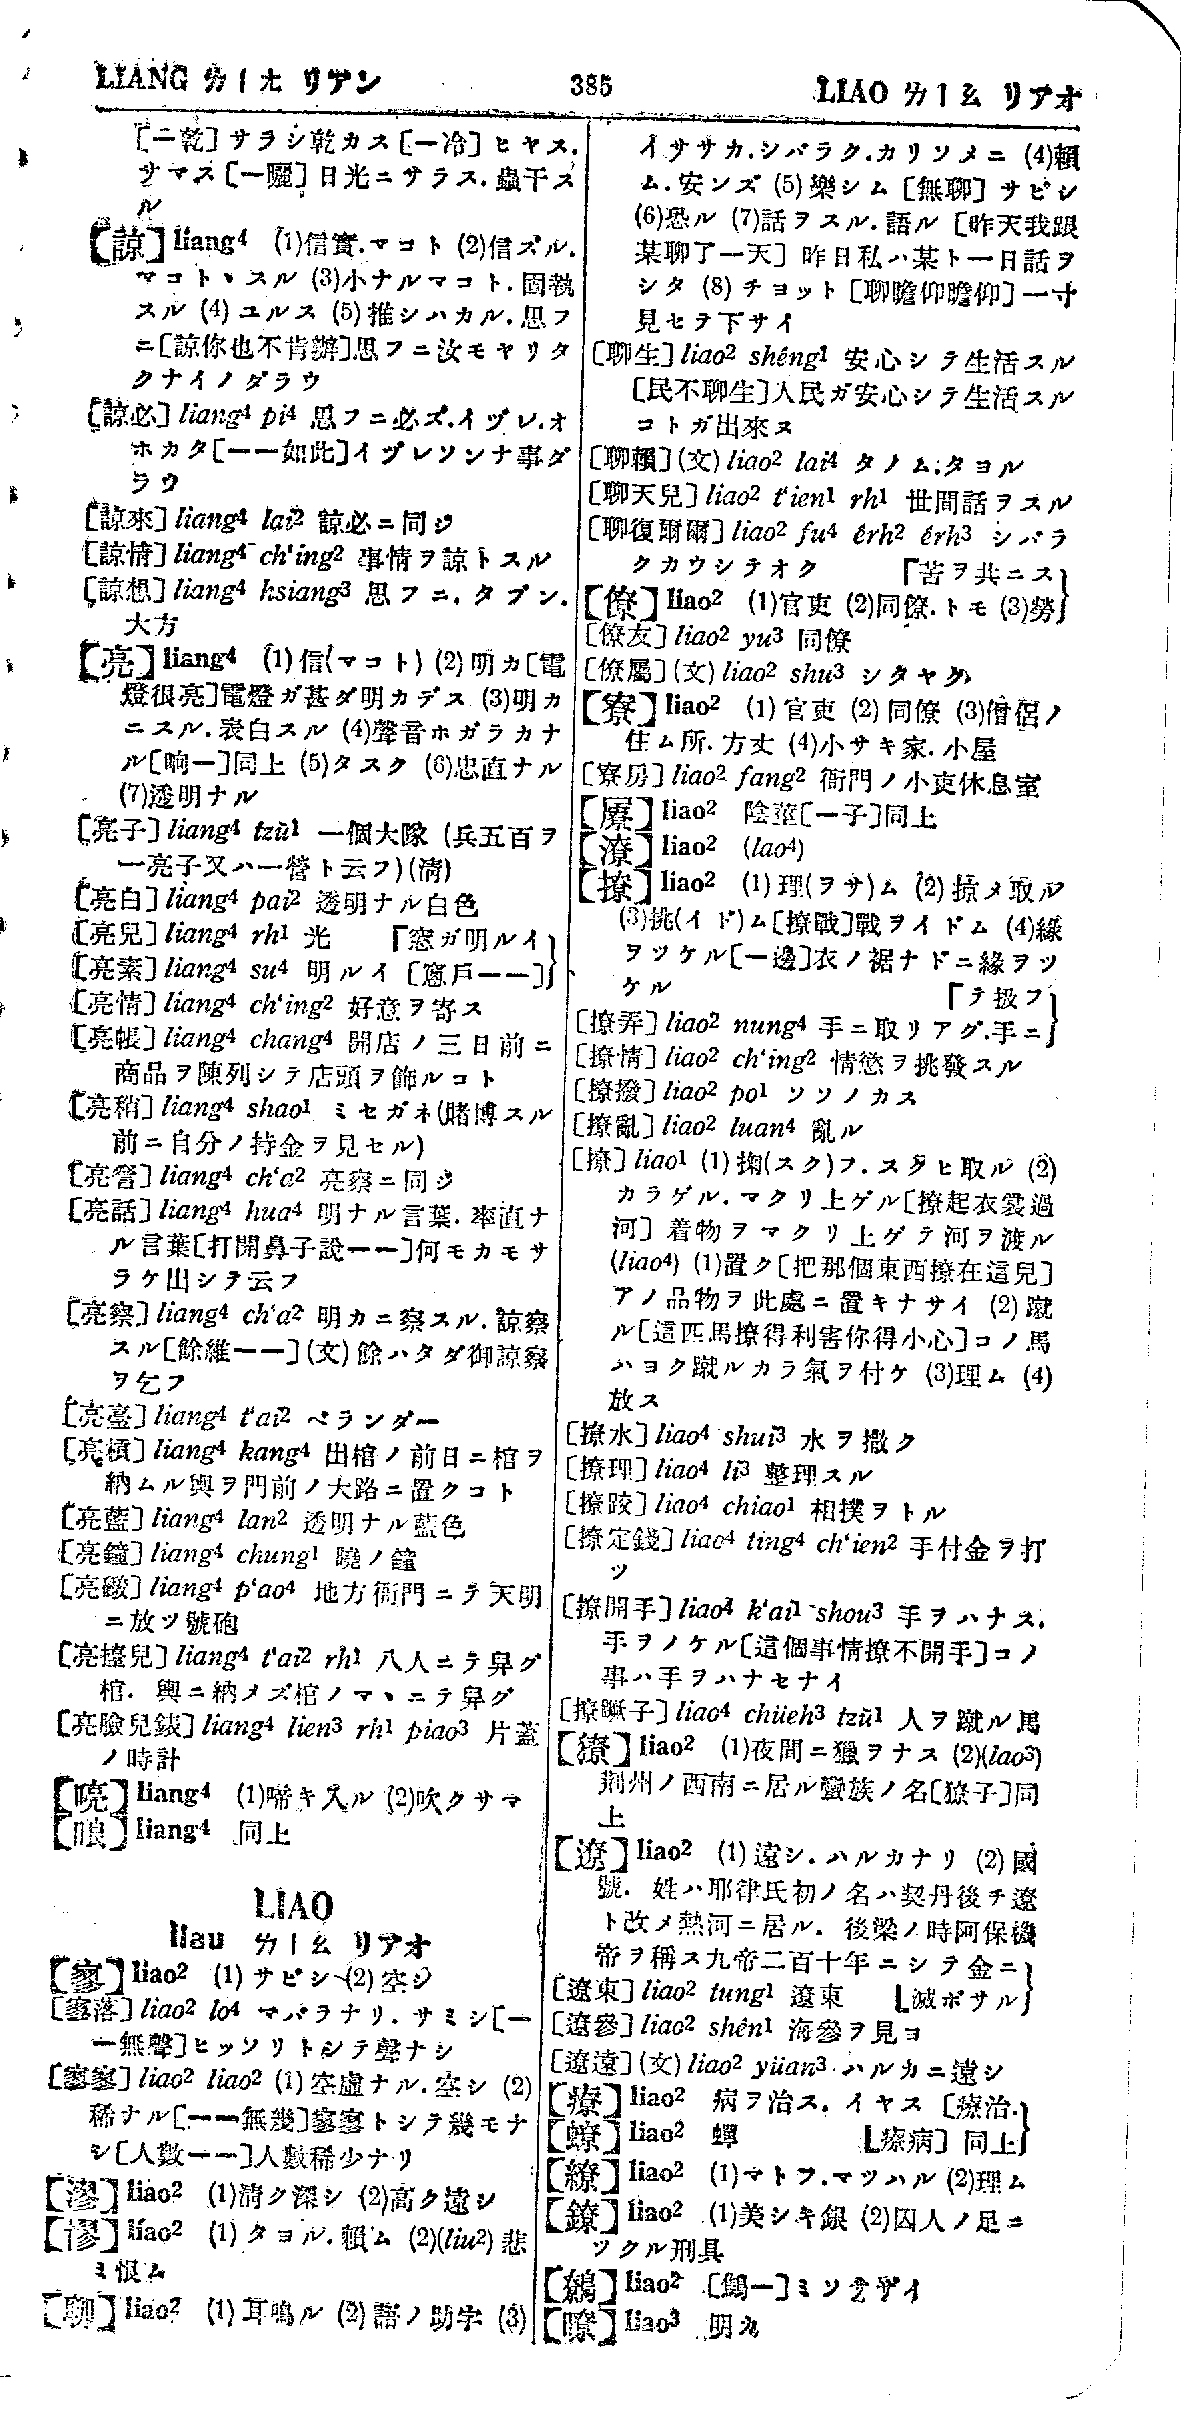 LIANG ㄌㄧㄤ リアン
385
LIAO ㄌㄧㄠ リアオ
[一乾] サラシ乾カス [一冷] ヒヤス.
サマス [一曬] 日光ニサラス. 蟲干ス
ル
【諒】 liang⁴ (1)信實.マコト (2)信ズル.
マコトヽスル (3)小ナルマコト. 固執
スル (4) ユルス (5) 推シハカル. 思フ
ニ[諒你也不肯辦]思フニ汝モヤリタ
クナイノダラウ
[諒必] liang⁴ pi⁴ 思フニ必ズ.イヅレ.オ
ホカタ[一一如此]イヅレソンナ事ダ
ラウ
[諒來] liang⁴ lai² 諒必ニ同ジ
[諒情] liang⁴ ch'ing² 事情ヲ諒トスル
[諒想] liang⁴ hsiang³ 思フニ. タブン.
大方
【亮】 liang⁴ (1)信(マコト) (2) 明カ[電
燈很亮]電燈ガ甚ダ明カデス (3)明カ
ニスル. 表白スル (4)聲音ホガラカナ
ル[响一]同上 (5)タスク (6)忠直ナル
(7)透明ナル
[亮子] liang⁴ tzŭ¹ 一個大隊 (兵五百ヲ
一亮子又ハ一營ト云フ)(清)
[亮白] liang⁴ pai² 透明ナル白色
[亮兒] liang⁴ rh¹ 光 「窓ガ明ルイ
[亮素] liang⁴ su⁴ 明ルイ [窓戶一一]
[亮情] liang⁴ ch'ing² 好意ヲ寄ス
[亮帳] liang⁴ chang⁴ 開店ノ三日前ニ
商品ヲ陳列シテ店頭ヲ飾ルコト
[亮稍] liang⁴ shao¹ ミセガネ(賭博スル
前ニ自分ノ持金ヲ見セル)
[亮詧] liang⁴ ch'a² 亮察ニ同ジ
[亮話] liang⁴ hua⁴ 明ナル言葉. 率直ナ
ル言葉[打開鼻子說一一]何モカモサ
ラケ出シテ云フ
[亮察] liang⁴ ch'a² 明カニ察スル. 諒察
スル[餘維一一](文) 餘ハタダ御諒察
ヲ乞フ
[亮臺] liang⁴ t'ai² ベランダー
[亮槓] liang⁴ kang⁴ 出棺ノ前日ニ棺ヲ
納ムル輿ヲ門前ノ大路ニ置クコト
[亮藍] liang⁴ lan² 透明ナル藍色
[亮鐘] liang⁴ chung¹ 曉ノ鐘
[亮礮] liang⁴ p'ao⁴ 地方衙門ニテ天明
ニ放ツ號砲
liang⁴ t'ai² rh¹ 八人ニテ舁グ
棺. 輿ニ納メズ棺ノマヽニテ舁グ
[亮臉兒錶] liang⁴ lien³ rh¹ piao³ 片蓋
ノ時計
liang⁴ (1)啼キ入ル (2)吹クサマ
【哴】 liang⁴ 同上
LIAO
liau ㄌㄧㄠ リアオ
【寥】 liao² (1) サビシ (2) 空シ
[寥落] liao² lo⁴ マバラナリ. サミシ[一
一無聲]ヒッソリトシテ聲ナシ
[寥寥] liao² liao² (1) 空虛ナル.空シ (2)
稀ナル[一一無幾]寥寥トシテ幾モナ
シ[人數一一]人數稀少ナリ
【漻】 liao² (1)清ク深シ (2)高ク遠シ
liao² (1) タヨル.賴ム (2)(liu²) 悲
ミ恨ム
【聊】 liao² (1) 耳鳴ル (2) 語ノ助字 (3)
イササカ.シバラク.カリソメニ (4)賴
ム. 安ンズ (5) 樂シム [無聊] サビシ
(6)恐ル (7)話ヲスル. 語ル [昨天我跟
某聊了一天] 昨日私ハ某ト一日話ヲ
シタ (8) チョット [聊瞻仰瞻仰]一寸
見セテ下サイ
[聊生] liao² shêng¹ 安心シテ生活スル
[民不聊生]人民ガ安心シテ生活スル
コトガ出來ヌ
[聊賴] (文) liao² lai⁴ タノム.タヨル
[聊天兒] liao² t'ien¹ rh¹ 世間話ヲスル
[聊復爾爾] liao² fu⁴ êrh² êrh³ シバラ
クカウシテオク 「苦ヲ共ニス
【僚】 liao² (1)官吏 (2)同僚.トモ (3)勞
[僚友] liao² yu³ 同僚
[僚屬] (文) liao² shu³ シタヤク
【寮】 liao² (1) 官吏 (2) 同僚 (3)僧侶ノ
住ム所. 方丈 (4)小サキ家. 小屋
[寮房] liao² fang² 衙門ノ小吏休息室
liao² 陰莖[一子]同上
【潦】 liao² (lao⁴)
【撩】 liao² (1) 理(ヲサ)ム (2) 掠メ取ル
(3)挑(イド)ム[撩戰]戰ヲイドム (4)緣
ヲツケル[一邊]衣ノ裾ナドニ緣ヲツ
ケル 「テ扱フ
[撩弄] liao² nung⁴ 手ニ取リアグ.手ニ
[撩情] liao² ch'ing² 情慾ヲ挑發スル
[撩撥] liao² po¹ ソソノカス
[撩亂] liao² luan⁴ 亂ル
[撩] liao¹ (1) 掬(スク)フ. スクヒ取ル (2)
カラゲル. マクリ上ゲル[撩起衣裳過
河] 着物ヲマクリ上ゲテ河ヲ渡ル
(liao⁴) (1)置ク[把那個東西撩在這兒]
アノ品物ヲ此處ニ置キナサイ (2) 蹴
ル[這匹馬撩得利害你得小心]コノ馬
ハヨク蹴ルカラ氣ヲ付ケ (3)理ム (4)
放ス
[撩水] liao⁴ shui³ 水ヲ撒ク
[撩理] liao⁴ li³ 整理スル
[撩跤] liao⁴ chiao¹ 相撲ヲトル
[撩定錢] liao⁴ ting⁴ ch'ien² 手付金ヲ打
ツ
[撩開手] liao⁴ k'ai¹ shou³ 手ヲハナス.
手ヲノケル[這個事情撩不開手]コノ
事ハ手ヲハナセナイ
[撩蹶子] liao⁴ chüeh³ tzŭ¹ 人ヲ蹴ル馬
【獠】 liao² (1)夜間ニ獵ヲナス (2)(lao³)
荆州ノ西南ニ居ル蠻族ノ名[獠子]同
上
【遼】 liao² (1) 遠シ. ハルカナリ (2) 國
號. 姓ハ耶律氏初ノ名ハ契丹後チ遼
ト改メ熱河ニ居ル. 後梁ノ時阿保機
帝ヲ稱ス九帝二百十年ニシテ金ニ
[遼東] liao² tung¹ 遼東 ⌊滅ボサル
[遼參] liao² shên¹ 海參ヲ見ヨ
[遼遠] (文) liao² yüan³ ハルカニ遠シ
【療】 liao² 病ヲ治ス. イヤス [療治.
【蟟】 liao² 蟬 ⌊療病] 同上
【繚】 liao² (1)マトフ.マツハル (2)理ム
【鐐】 liao² (1)美シキ銀 (2)囚人ノ足ニ
ツクル刑具
【鷯】 liao² [鷦一]ミソサザイ
【瞭】 liao³ 明カ